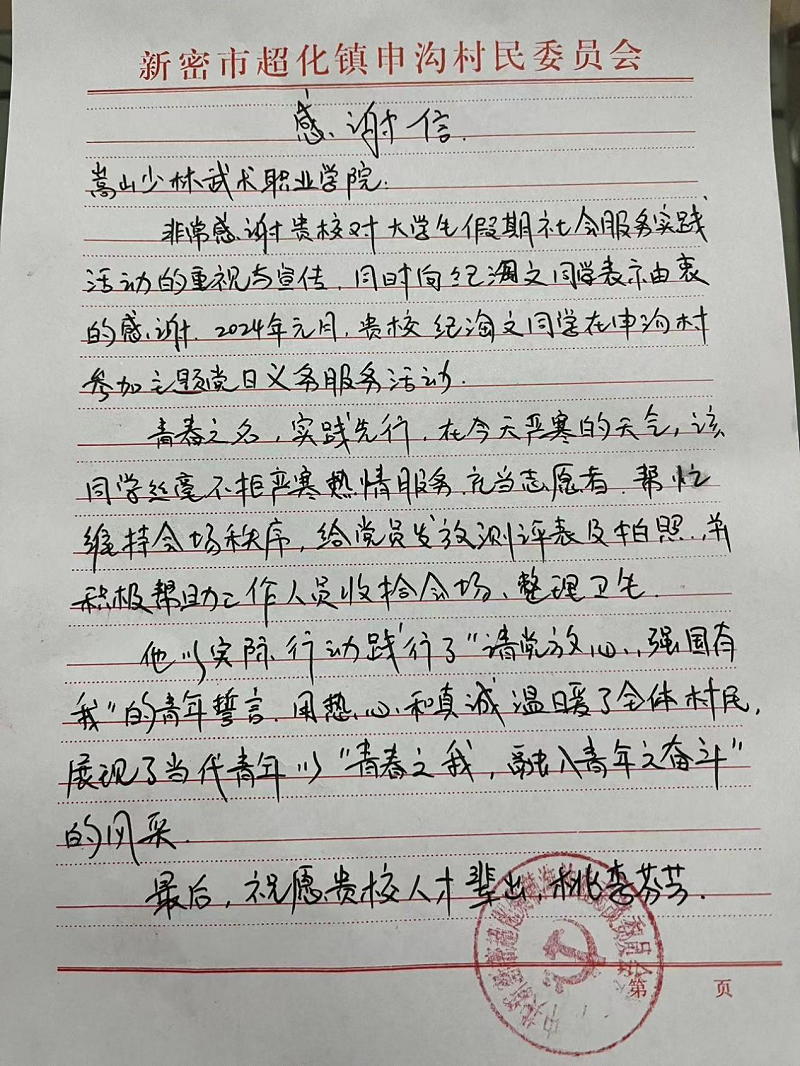 新密市超化镇申沟村民委员会
感谢信.
嵩山少林武术职业学院:
非常感谢贵校对大学生假期社会服务实践
活动的重视与宣传，同时向纪淘文同学表示由衷
的感谢. 2024年元月，贵校纪淘文同学在申沟村
参加主题党日义务服务活动.
青春之名，实践先行，在今天严寒的天气，该
同学丝毫不拒严寒热情服务，充当志愿者，帮忙
维持会场秩序，给党员发放测评表及拍照，并
积极帮助工作人员收拾会场、整理卫生.
他以实际行动践行了“请党放心，强国有
我”的青年誓言，用热心和真诚温暖了全体村民，
展现了当代青年以“青春之我，融入青年之奋斗”
的风采.
最后，祝愿贵校人才辈出，桃李芬芳.
第 页